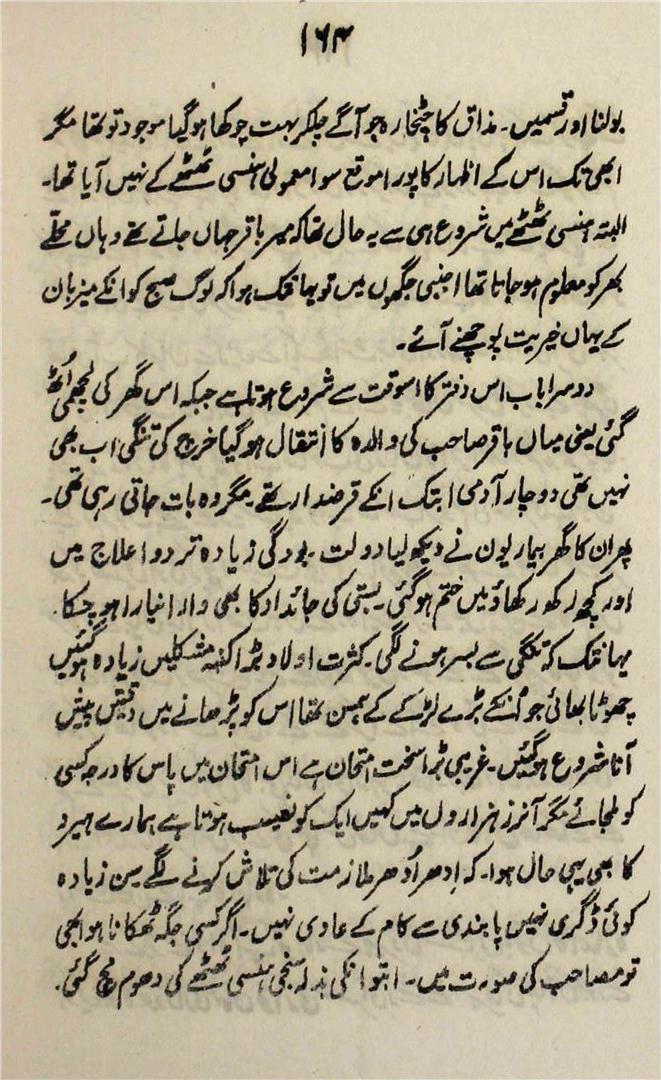 ۱۶۴
بولنا اور قسمیں۔ مذاق کا چٹخارہ جو آگے چلکر بہت چوکھا ہوگیا موجود تو تھا مگر
ابھی تک اس کے اظہار کا پورا موقع سوا معمولی ہنسی ٹھٹھے کے نہیں آیا تھا۔
البتہ ہنسی ٹھٹھے میں شروع ہی سے یہ حال تھا کہ میر باقر جہاں جاتے تھے وہاں محلے
بھر کو معلوم ہو جاتا تھا اجنبی جگہوں میں تو یہانتک ہوا کہ لوگ صبح کو انکے میزبان
کے یہاں خیریت پوچھنے آئے۔
دوسرا باب اس دفتر کا اسوقت سے شروع ہوتا ہے جبکہ اس گھر کی لچھمی اُٹھ
گئی یعنی میاں باقر صاحب کی والدہ کا انتقال ہوگیا خرچ کی تنگی اب بھی
نہیں تھی دو چار آدمی ابتک انکے قرضدار تھے۔ مگر وہ بات جاتی رہی تھی۔
پھر ان کا گھر بیماریوں نے دیکھ لیا دولت۔ بودگی زیادہ تر دوا علاج میں
اور کچھ رکھ رکھاؤ میں ختم ہوگئی۔ بستی کی جائداد کا بھی وارا نیارا ہو چکا۔
یہانتک کہ تنگی سے بسر ہونے لگی۔ کثرت اولاد بڑا کنبہ مشکلیں زیادہ ہوگئیں
چھوٹا بھائی جو اُنکے بڑے لڑکے کے ہمسن تھا اس کو پڑھانے میں دقتیں پیش
آنا شروع ہوگئیں۔ غریبی بڑا سخت امتحان ہے اس امتحان میں پاس کا درجہ کسی
کو ملجائے مگر آنرز ہزاروں میں کہیں ایک کو نصیب ہوتا ہے ہمارے ہیرو
کا بھی یہی حال ہوا۔ کہ اِدھر اُدھر ملازمت کی تلاش کرنے لگے سن زیادہ
کوئی ڈگری نہیں پابندی سے کام کے عادی نہیں۔ اگر کسی جگہ ٹھکانا ہو بھی
تو مصاحب کی صورت میں۔ ابتو انکی بذلہ سنجی ہنسی ٹھٹھے کی دھوم مچ گئی۔